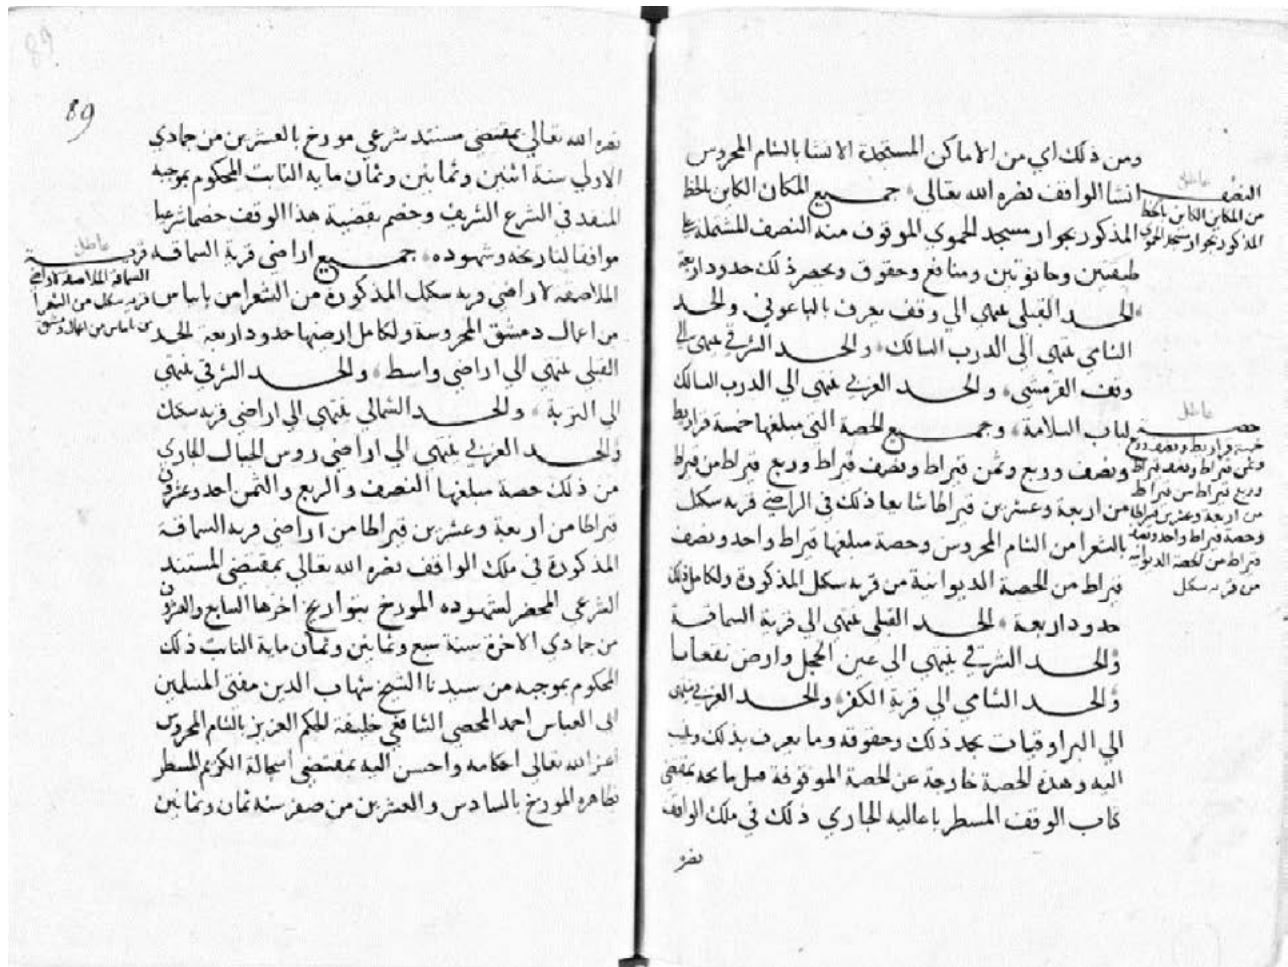 ومن ذلك اي من الاماكن المستجدة الانشا بالشام المحروس
انشا الواقف نصره الله تعالى جميع المكان الكاين بالخط
المذكور بجوار مسجد الحموي الموقوف منه النصف المشتملة على
طبقتين وحانوتين ومنافع وحقوق ويحصر ذلك حدود اربعة
الحد القبلي ينتهي الي وقف يعرف بالباعوني والحد
الشامي ينتهي الى الدرب السالك والحد الشرقي ينتهي الي
وقف القرمشي والحد الغربي ينتهي الي الدرب السالك
لباب السلامة وجميع الحصة التي مبلغها خمسة قراريط
ونصف وربع وثمن قيراط ونصف قيراط وربع قيراط من قيراط
من اربعة وعشرين قيراطا شايعا ذلك في اراضي قرية سكل
بالشعرا من الشام المحروس وحصة مبلغها قيراط واحد ونصف
قيراط من الحصة الديوانية من قرية سكل المذكورة ولكامل ذلك
حدود اربعة الحد القبلي ينتهي الي قرية السماقة
والحد الشرقي ينتهي الي عين الحجل وارض
والحد الشامي الي قرية الكفر والحد الغربي ينتهي
الي البراوقيات بحد ذلك وحقوقه وما يعرف بذلك
اليه وهذه الحصة خارجة عن الحصة الموقوفة قبل بمقتضي
كتاب الوقف المسطر باعاليه الجاري ذلك في ملك الواقف
نصره
النصف
من المكان الكاين بالخط
المذكور بجوار مسجد الحموي
حصة
خمسة قراريط ونصف وربع
وثمن قيراط ونصف قيراط
وربع قيراط من قيراط
من اربعة وعشرين قيراطا
وحصة قيراط واحد ونصف
قيراط من الحصة الديوانية
من قرية سكل
89
نصره الله تعالي بمقتضي مستند شرعي مورخ بالعشرين من جمادي
الاولي سنة اثنين وثمانين وثمان ماية الثابت المحكوم بموجبه
المنفذ في الشرع الشريف وخصم بقضية هذا الوقف خصما شرعيا
موافقا لتاريخه وشهوده جميع اراضي قرية السماقة
الملاصقة لاراضي قرية سكيك المذكورة من الشعرا من بانياس
من اعمال دمشق المحروسة ولكامل ارضها حدود اربعة الحد
القبلي ينتهي الي اراضي واسط والحد الشرقي ينتهي
الي التربة والحد الشمالي ينتهي الي اراضي قرية سكيك
والحد الغربي ينتهي الي اراضي روس الجبال الجاري
من ذلك حصة مبلغها النصف والربع والثمن احد وعشرون
قيراطا من اربعة وعشرين قيراطا من اراضي قرية السماقة
المذكورة في ملك الواقف نصره الله تعالي بمقتضي المستند
الشرعي المحضر لشهوده المورخ بتواريخ اخرها السابع والعشرون
من جمادي الاخرة سنة سبع وثمانين وثمان ماية الثابت ذلك
المحكوم بموجبه من سيدنا الشيخ شهاب الدين مفتي المسلمين
ابي العباس احمد الشافعي خليفة الحكم العزيز بالشام المحروس
اعز الله تعالي احكامه واحسن اليه بمقتضي اسجاله الكريم المسطر
بظاهره المورخ بالسادس والعشرين من صفر سنة ثمان وثمانين
قرية
السماقة الملاصقة لاراضي
قرية سكيك من الشعرا
من بانياس من اعمال دمشق